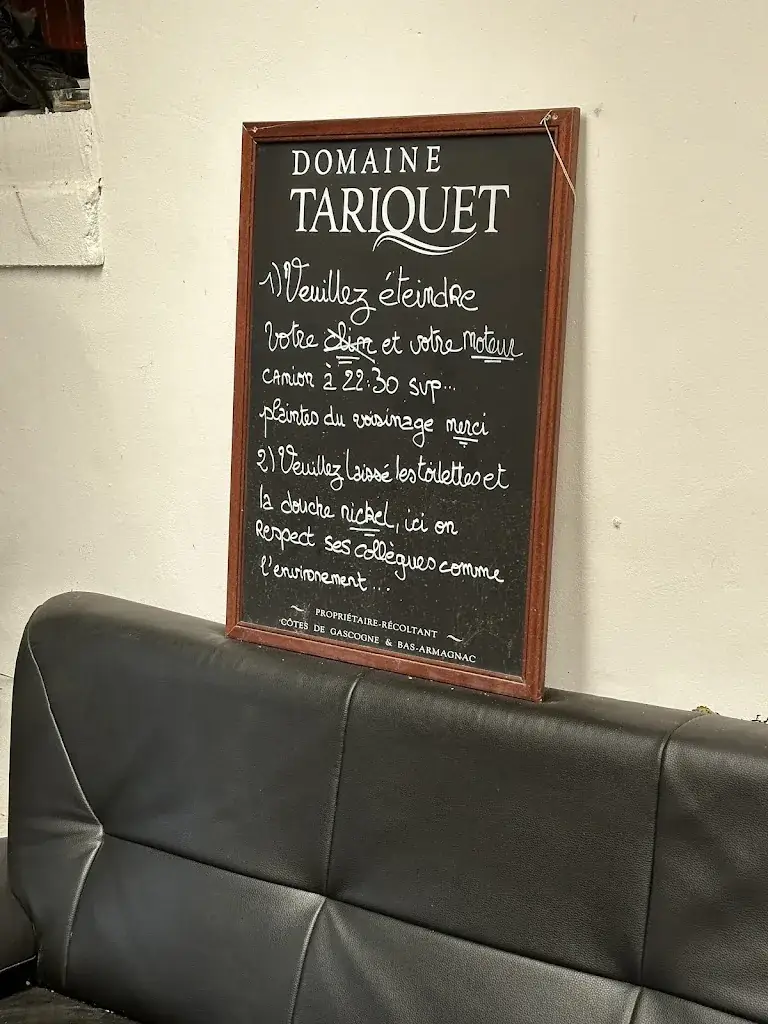 DOMAINE
TARIQUET
1) Veuillez éteindre
votre clim et votre moteur
camion à 22:30 svp...
plaintes du voisinage merci
2) Veuillez laissé les toilettes et
la douche nickel, ici on
respect ses collègues comme
l'environement...
~ PROPRIÉTAIRE-RÉCOLTANT ~
CÔTES DE GASCOGNE & BAS-ARMAGNAC